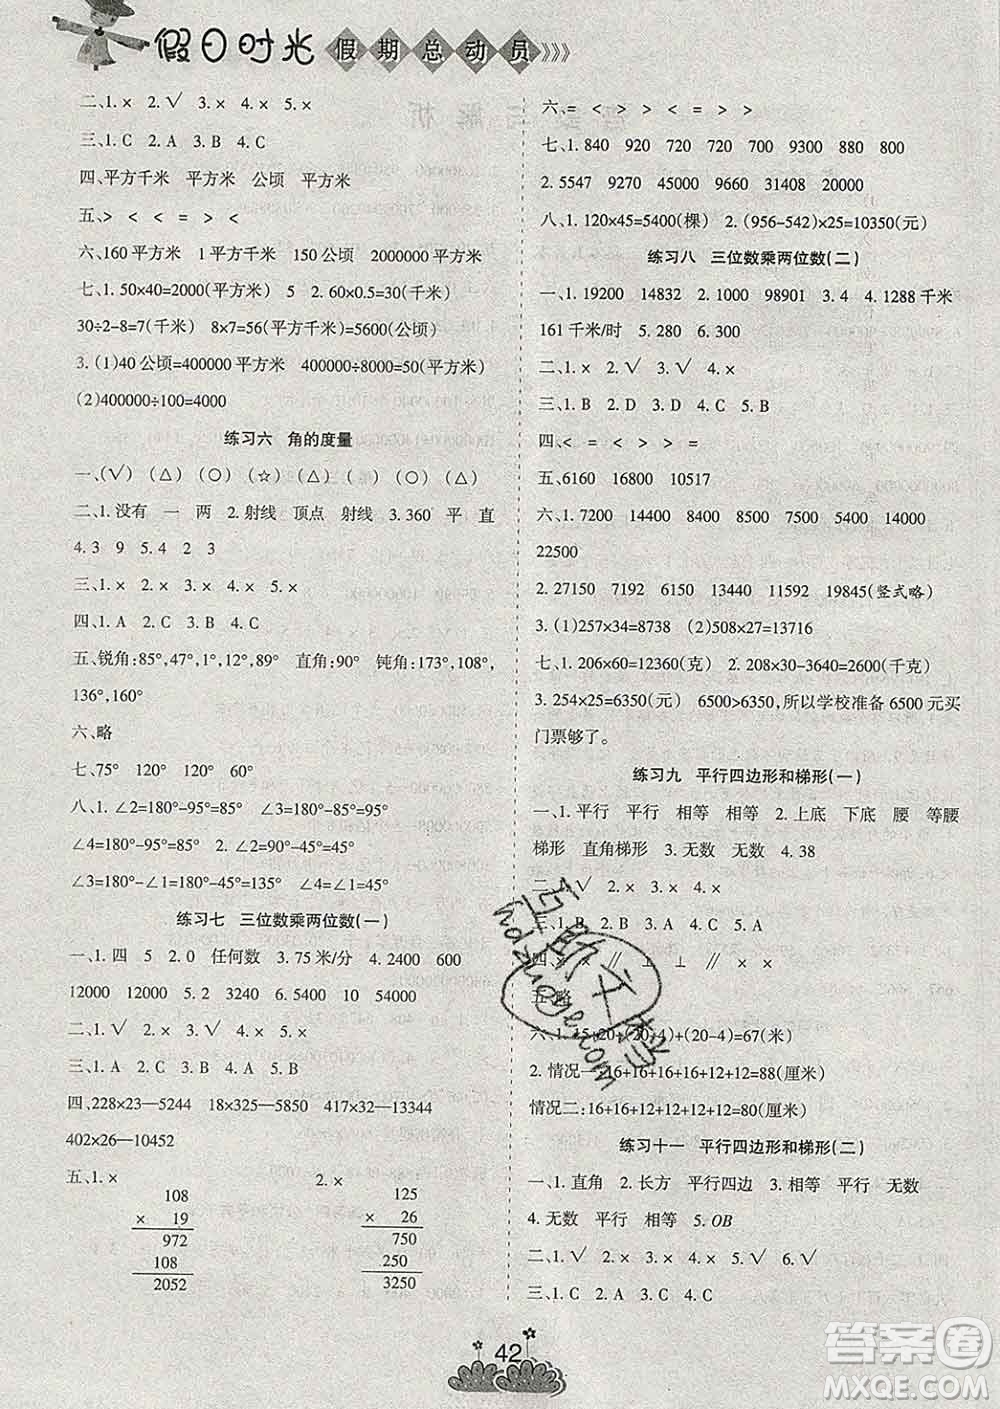 假日时光 假期总动员 》》》
二、1.× 2.√ 3.× 4.× 5.×
三、1.C 2.A 3.B 4.C
四、平方千米 平方米 公顷 平方米
五、> < < = > <
六、160平方米 1平方千米 150公顷 2000000平方米
七、1.50×40=2000(平方米) 5 2.60×0.5=30(千米)
30÷2-8=7(千米) 8×7=56(平方千米)=5600(公顷)
3.(1)40公顷=400000平方米 400000÷8000=50(平方米)
(2)400000÷100=4000
练习六 角的度量
一、(√) (△) (○) (☆) (△) (○) (△)
二、1.没有 一 两 2.射线 顶点 射线 3.360 平 直
4.3 9 5.4 2 3
三、1.× 2.× 3.× 4.× 5.×
四、1.A 2.A 3.B 4.C
五、锐角:85°,47°,1°,12°,89° 直角:90° 钝角:173°,108°,
136°,160°
六、略
七、75° 120° 120° 60°
八、1.∠2=180°-95°=85° ∠3=180°-85°=95°
∠4=180°-95°=85° 2.∠2=90°-60°=30°
∠3=180°-60°=120° ∠4=180°-120°=60°
练习七 三位数乘两位数(一)
一、1.四 5 2.0 任何数 3.75米/分 4.2400 600
12000 12000 5.2 3240 6.100 54 10 54000
二、1.√ 2.× 3.√ 4.× 5.×
三、1.A 2.C 3.B 4.C
四、228×23—5244 18×325—5850 417×32—13344
402×26—10452
五、1.× 2.×
108 125
× 19 × 26
972 750
108 250
2052 3250
六、= < > > < = > >
七、1.840 920 720 720 880 880
2.5547 9270 45000 9000 31408 20000
八、1.120×45=5400(棵) 2.(956-542)×25=10350(元)
练习八 三位数乘两位数(二)
一、1.19200 14832 2.1000 98901 3.4 4.1288千米
161千米/时 5.280 6.300
二、1.× 2.√ 3.√ 4.×
三、1.B 2.D 3.D 4.C 5.B
四、< = < > > =
五、6160 16800 10517
六、1.7200 14400 8400 7500 5400 14000
22500
2.27150 7192 6150 13440 11592 19845(竖式略)
3.(1)257×34=8738 (2)508×27=13716
七、1.206×60=12360(克) 2.200×13=2600(千克)
3.254×25=6350(元) 6500>6350,所以学校准备6500元买
门票够了。
练习九 平行四边形和梯形(一)
一、1.平行 平行 相等 相等 2.上底 下底 腰 等腰
梯形 直角梯形 3.无数 无数 4.38
二、1.√ 2.× 3.× 4.√
三、1.B 2.B 3.A 4.A
四、× × ∥ ⊥ ⊥ ∥ ×
五、略
六、1.15+20+(20+4)+(20-4)=67(米)
2.情况一:16+16+16+16+12+12=88(厘米)
情况二:16+16+12+12+12+12=80(厘米)
练习十一 平行四边形和梯形(二)
一、1.直角 2.长方 平行四边 3.相等 平行 无数
4.无数 平行 相等 5.OB
二、1.√ 2.× 3.× 4.× 5.√ 6.√
三、1.C 2.A 3.B 4.C
42
互助文档
hdzuoye.com
答案圈
MXQE.COM